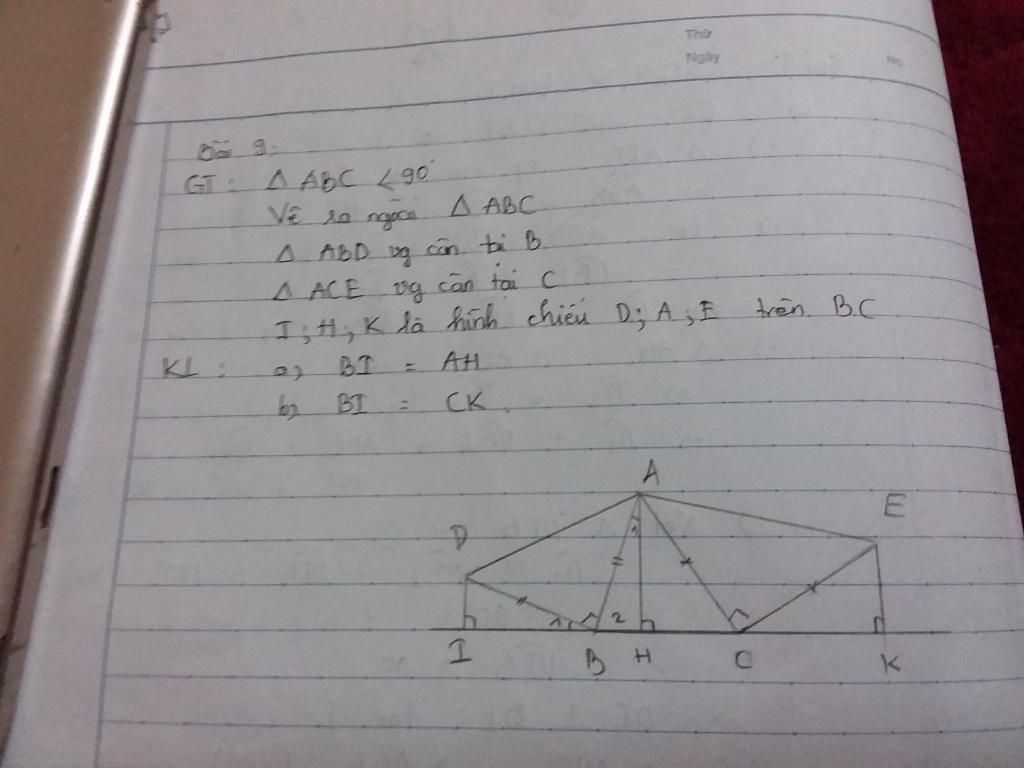 Thứ
Ngày No
Bài 9:
GT: Δ ABC < 90°
Vẽ ra ngoài Δ ABC
Δ ABD vg cân tại B
Δ ACE vg cân tại C
I; H; K là hình chiếu D; A; E trên BC
KL: a) BI = AH
b) BI = CK.
A
E
D
1
2
I B H C K